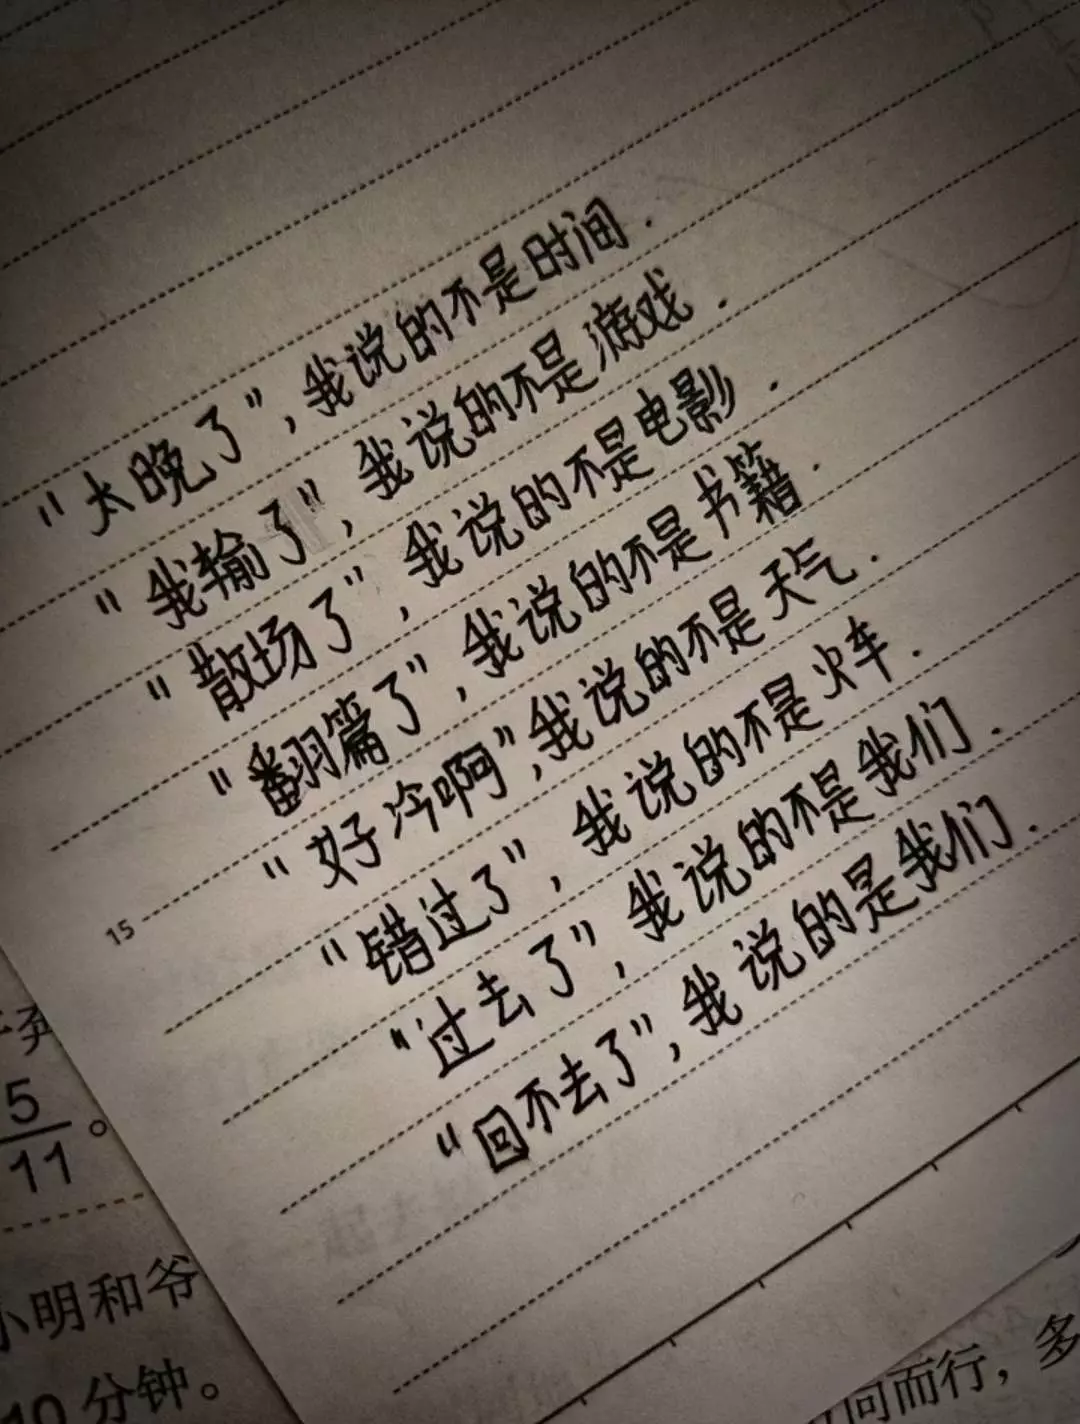 “太晚了”,我说的不是时间.
“我输了”,我说的不是游戏.
“散场了”,我说的不是电影.
“翻篇了”,我说的不是书籍.
“好冷啊”,我说的不是天气.
“错过了”,我说的不是火车.
“过去了”,我说的不是我们.
“回不去了”,我说的是我们.
15
5
11
。
小明和爷
10分钟。
向而行，多